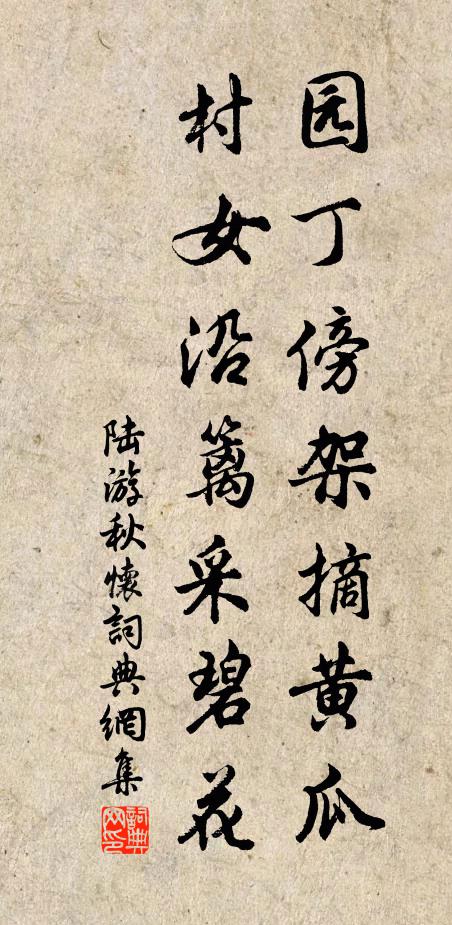 园丁傍架摘黄瓜
村女沿篱采碧花
陆游秋懷詞典網集
詞典网印